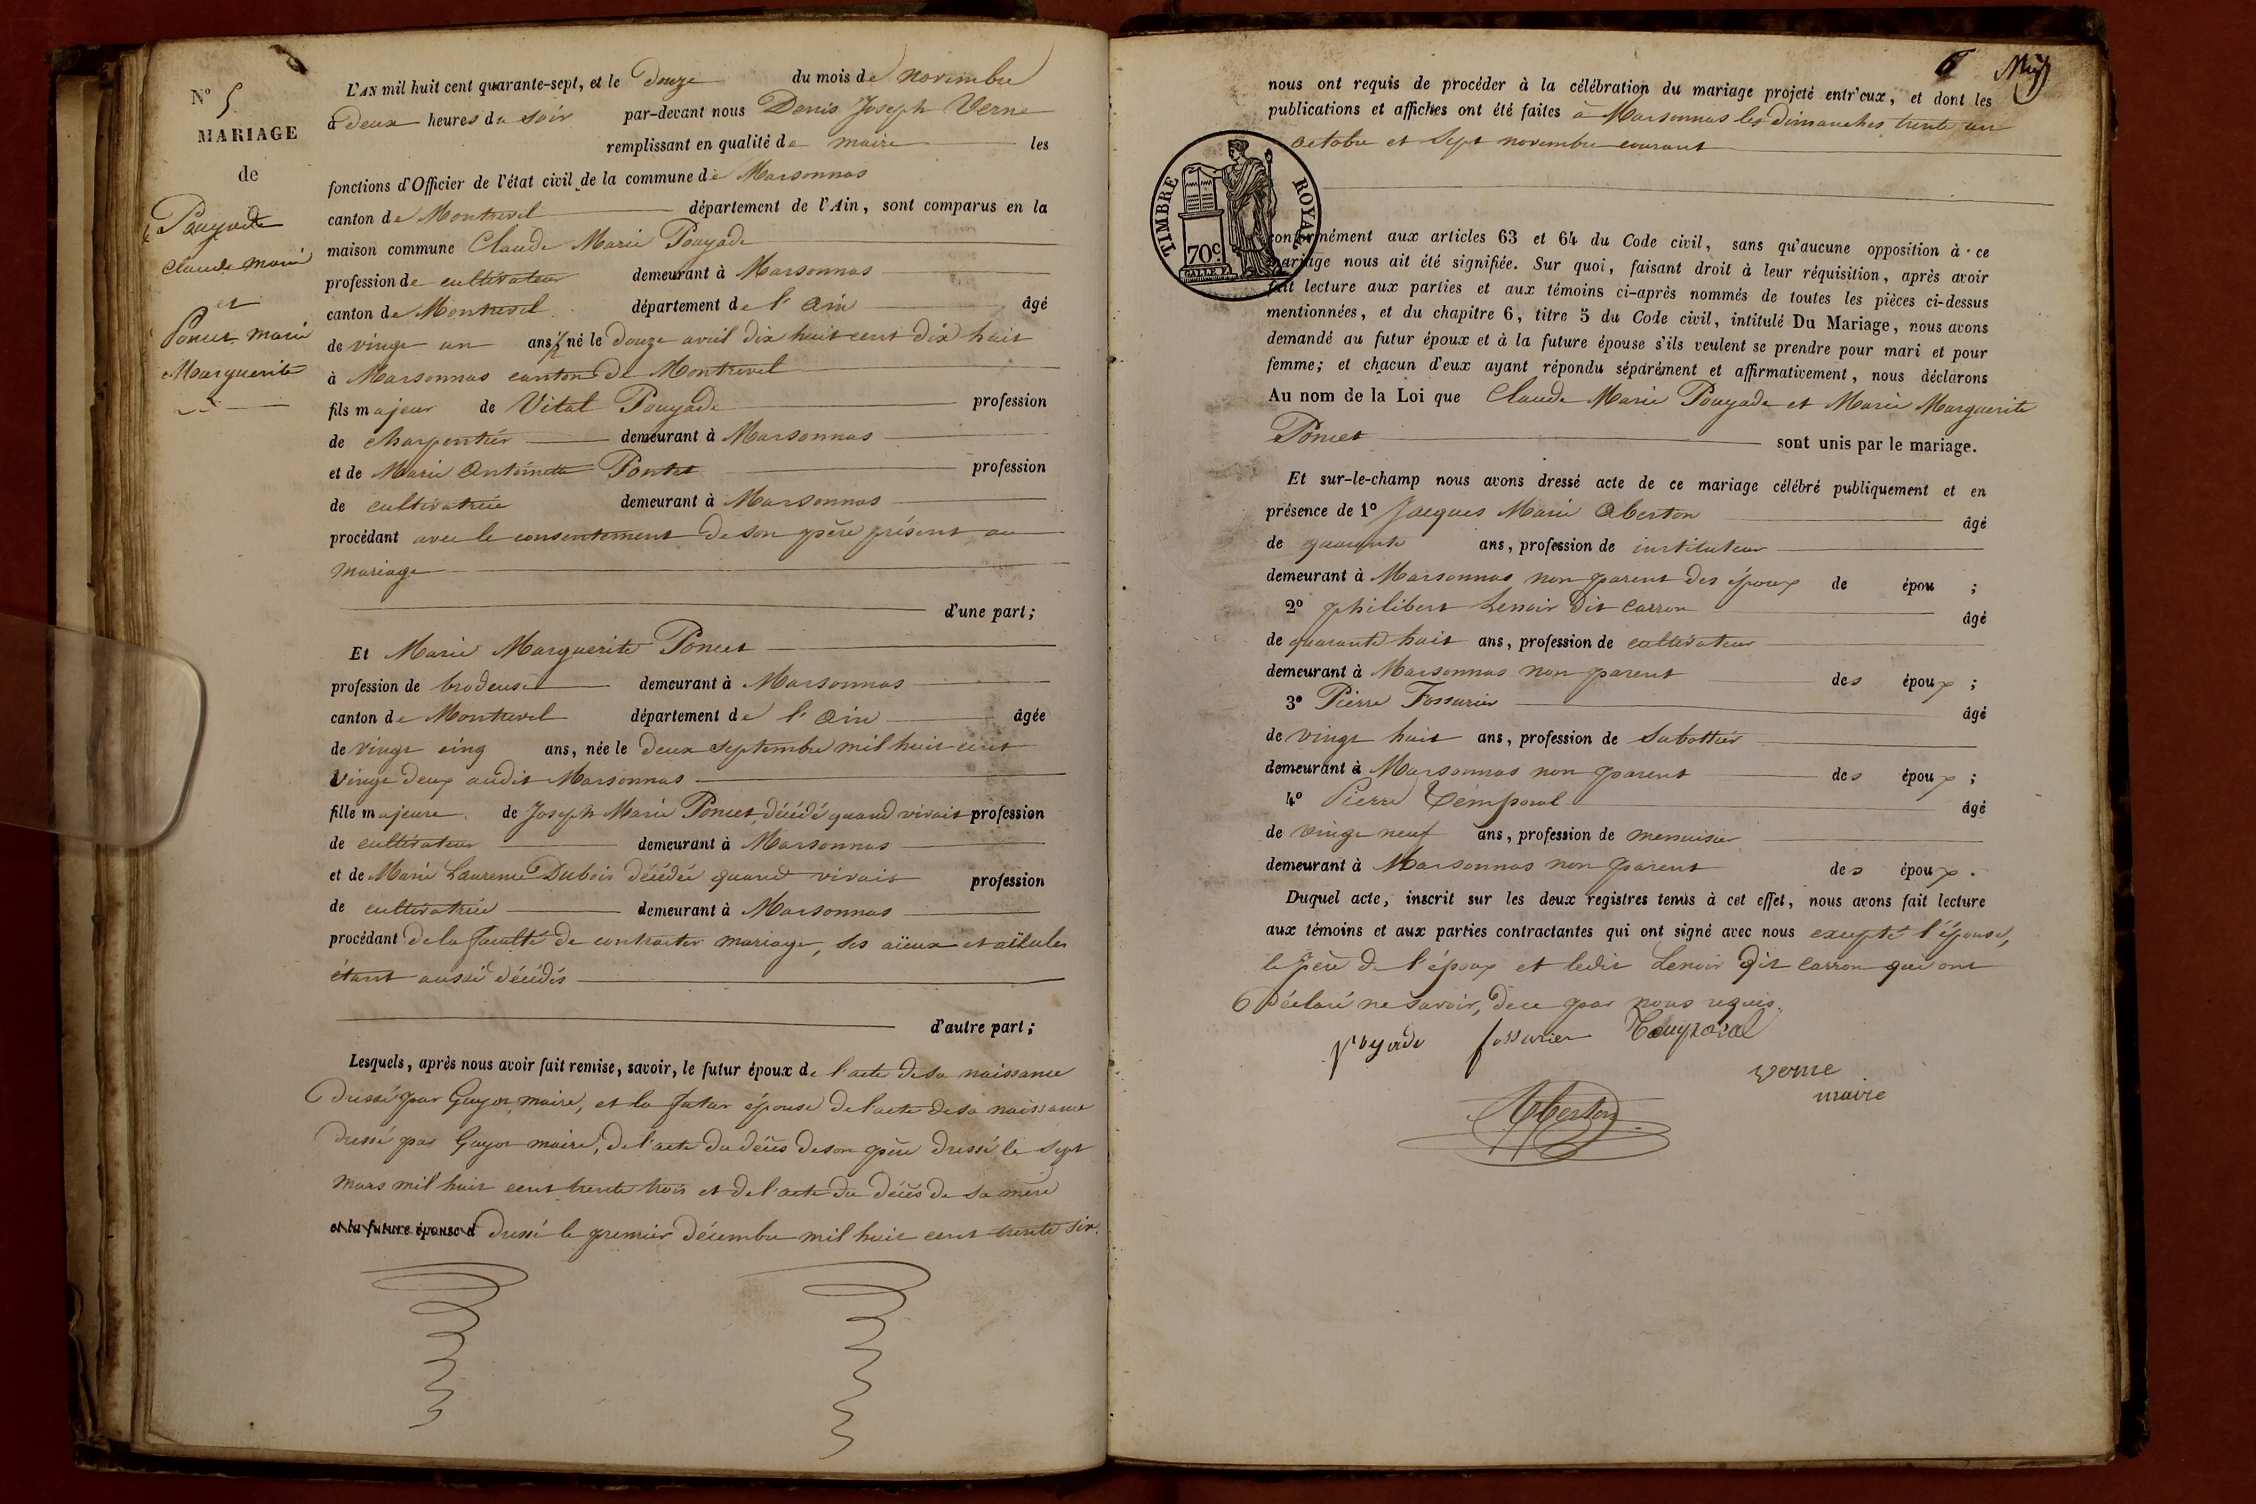 N° 5
MARIAGE
de
Pouyade
Claude Marie
et
Poncet Marie
Marguerite
L'AN mil huit cent quarante-sept, et le Douze du mois de novembre
à deux heures du soir par-devant nous Denis Joseph Verne
remplissant en qualité de maire les
fonctions d'Officier de l'état civil de la commune de Marsonnas
canton de Montrevel département de l'Ain, sont comparus en la
maison commune Claude Marie Pouyade
profession de cultivateur demeurant à Marsonnas
canton de Montrevel département de l'Ain âgé
de vingt un ans, né le douze avril dix huit cent dix huit
à Marsonnas canton de Montrevel
fils majeur de Vital Pouyade profession
de charpentier demeurant à Marsonnas
et de Marie Antoinette Pontet profession
de cultivatrice demeurant à Marsonnas
procédant avec le consentement de son père présent au
mariage
d'une part;
Et Marie Marguerite Poncet
profession de brodeuse demeurant à Marsonnas
canton de Montrevel département de l'Ain âgée
de vingt cinq ans, née le deux septembre mil huit cent
vingt deux audit Marsonnas
fille majeure de Joseph Marie Poncet décédé quand vivait profession
de cultivateur demeurant à Marsonnas
et de Marie Laurence Dubois décédée quand vivait profession
de cultivatrice demeurant à Marsonnas
procédant de la faculté de contracter mariage, ses aïeux et aïeules
étant aussi décédés
d'autre part;
Lesquels, après nous avoir fait remise, savoir, le futur époux de l'acte de sa naissance
dressé par Guyon maire, et la futur épouse de l'acte de sa naissance
dressé par Guyon maire, de l'acte du décès de son père dressé le sept
mars mil huit cent trente trois et de l'acte du décès de sa mère
et la future épouse d dressé le premier décembre mil huit cent trente six.
6
nous ont requis de procéder à la célébration du mariage projeté entr'eux, et dont les
publications et affiches ont été faites à Marsonnas les dimanches trente un
octobre et sept novembre courant
TIMBRE ROYAL
70c
conformément aux articles 63 et 64 du Code civil, sans qu'aucune opposition à ce
mariage nous ait été signifiée. Sur quoi, faisant droit à leur réquisition, après avoir
fait lecture aux parties et aux témoins ci-après nommés de toutes les pièces ci-dessus
mentionnées, et du chapitre 6, titre 5 du Code civil, intitulé Du Mariage, nous avons
demandé au futur époux et à la future épouse s'ils veulent se prendre pour mari et pour
femme; et chacun d'eux ayant répondu séparément et affirmativement, nous déclarons
Au nom de la Loi que Claude Marie Pouyade et Marie Marguerite
Poncet sont unis par le mariage.
Et sur-le-champ nous avons dressé acte de ce mariage célébré publiquement et en
présence de 1° Jacques Marie Oberton âgé
de quarante ans, profession de instituteur
demeurant à Marsonnas non parent des époux de épou ;
2° philibert Lenoir dit Carron âgé
de quarante huit ans, profession de cultivateur
demeurant à Marsonnas non parent des époux ;
3° Pierre Fossurier âgé
de vingt huit ans, profession de Sabottier
demeurant à Marsonnas non parent des époux ;
4° Pierre Temporal âgé
de vingt neuf ans, profession de menuisier
demeurant à Marsonnas non parent des époux.
Duquel acte, inscrit sur les deux registres tenus à cet effet, nous avons fait lecture
aux témoins et aux parties contractantes qui ont signé avec nous excepté l'épouse,
le père de l'époux et ledit Lenoir dit Carron qui ont
déclaré ne savoir, de ce par nous requis.
pouyade fossurier Temporal
verne
maire
Oberton